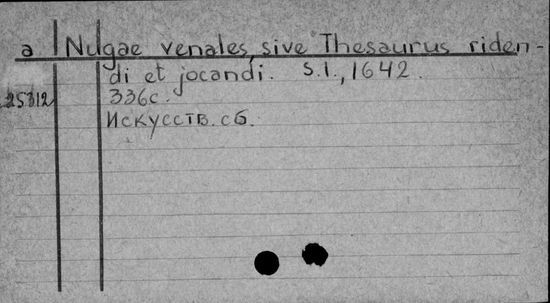 a Nugae venales, sive Thesaurus riden-
di et jocandi. S.l., 1642.
25312 336c.
Искусств. сб.